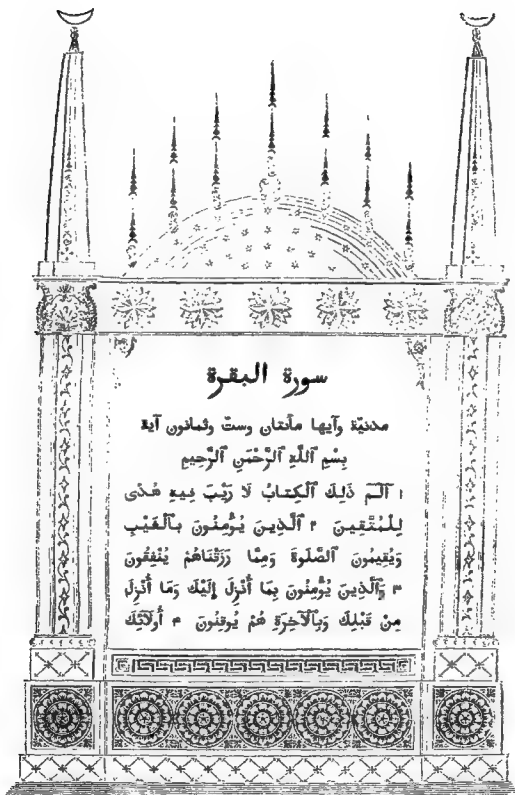 سورة البقرة
مدنيّة وآيها مائتان وستّ وثمانون آية
بِسْمِ ٱللَّهِ ٱلرَّحْمَنِ ٱلرَّحِيمِ
١ الٓمٓ ذَلِكَ ٱلْكِتَابُ لَا رَيْبَ فِيهِ هُدًى
لِلْمُتَّقِينَ ٢ ٱلَّذِينَ يُؤْمِنُونَ بِٱلْغَيْبِ
وَيُقِيمُونَ ٱلصَّلَوةَ وَمِمَّا رَزَقْنَاهُمْ يُنْفِقُونَ
٣ وَٱلَّذِينَ يُؤْمِنُونَ بِمَا أُنْزِلَ إِلَيْكَ وَمَا أُنْزِلَ
مِنْ قَبْلِكَ وَبِٱلْآخِرَةِ هُمْ يُوقِنُونَ ۴ أُولَائِكَ